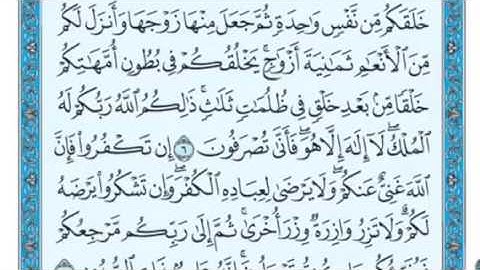 خَلَقَكُم مِّن نَّفْسٍ وَٰحِدَةٍ ثُمَّ جَعَلَ مِنْهَا زَوْجَهَا وَأَنزَلَ لَكُم
مِّنَ ٱلْأَنْعَٰمِ ثَمَٰنِيَةَ أَزْوَٰجٍ ۚ يَخْلُقُكُمْ فِي بُطُونِ أُمَّهَٰتِكُمْ
خَلْقًا مِّنۢ بَعْدِ خَلْقٍ فِي ظُلُمَٰتٍ ثَلَٰثٍ ۚ ذَٰلِكُمُ ٱللَّهُ رَبُّكُمْ لَهُ
ٱلْمُلْكُ ۖ لَآ إِلَٰهَ إِلَّا هُوَ ۖ فَأَنَّىٰ تُصْرَفُونَ ٦ إِن تَكْفُرُوا۟ فَإِنَّ
ٱللَّهَ غَنِيٌّ عَنكُمْ ۖ وَلَا يَرْضَىٰ لِعِبَادِهِ ٱلْكُفْرَ ۖ وَإِن تَشْكُرُوا۟ يَرْضَهُ
لَكُمْ ۗ وَلَا تَزِرُ وَازِرَةٌ وِزْرَ أُخْرَىٰ ۗ ثُمَّ إِلَىٰ رَبِّكُم مَّرْجِعُكُمْ